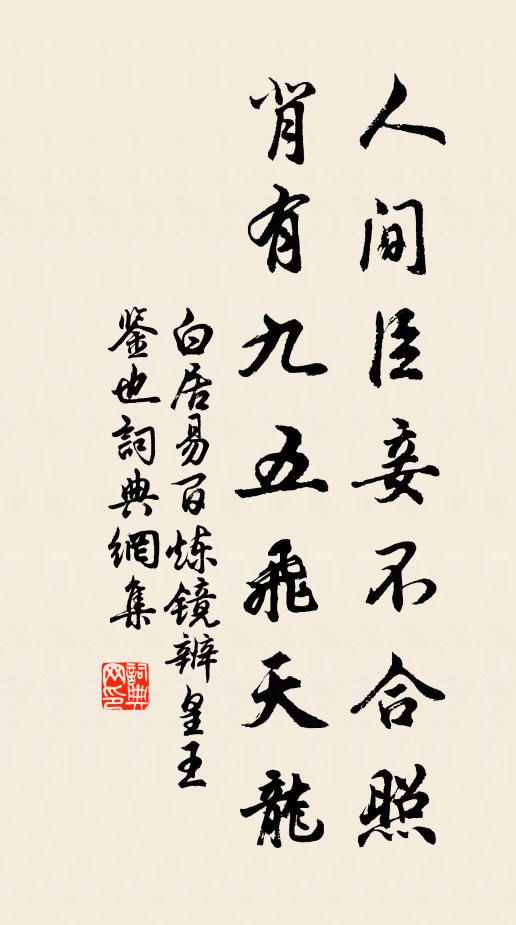 人間臣妾不合照
背有九五飛天龍
白居易百炼鏡辨皇王
鉴也詞典網集
詞典网印